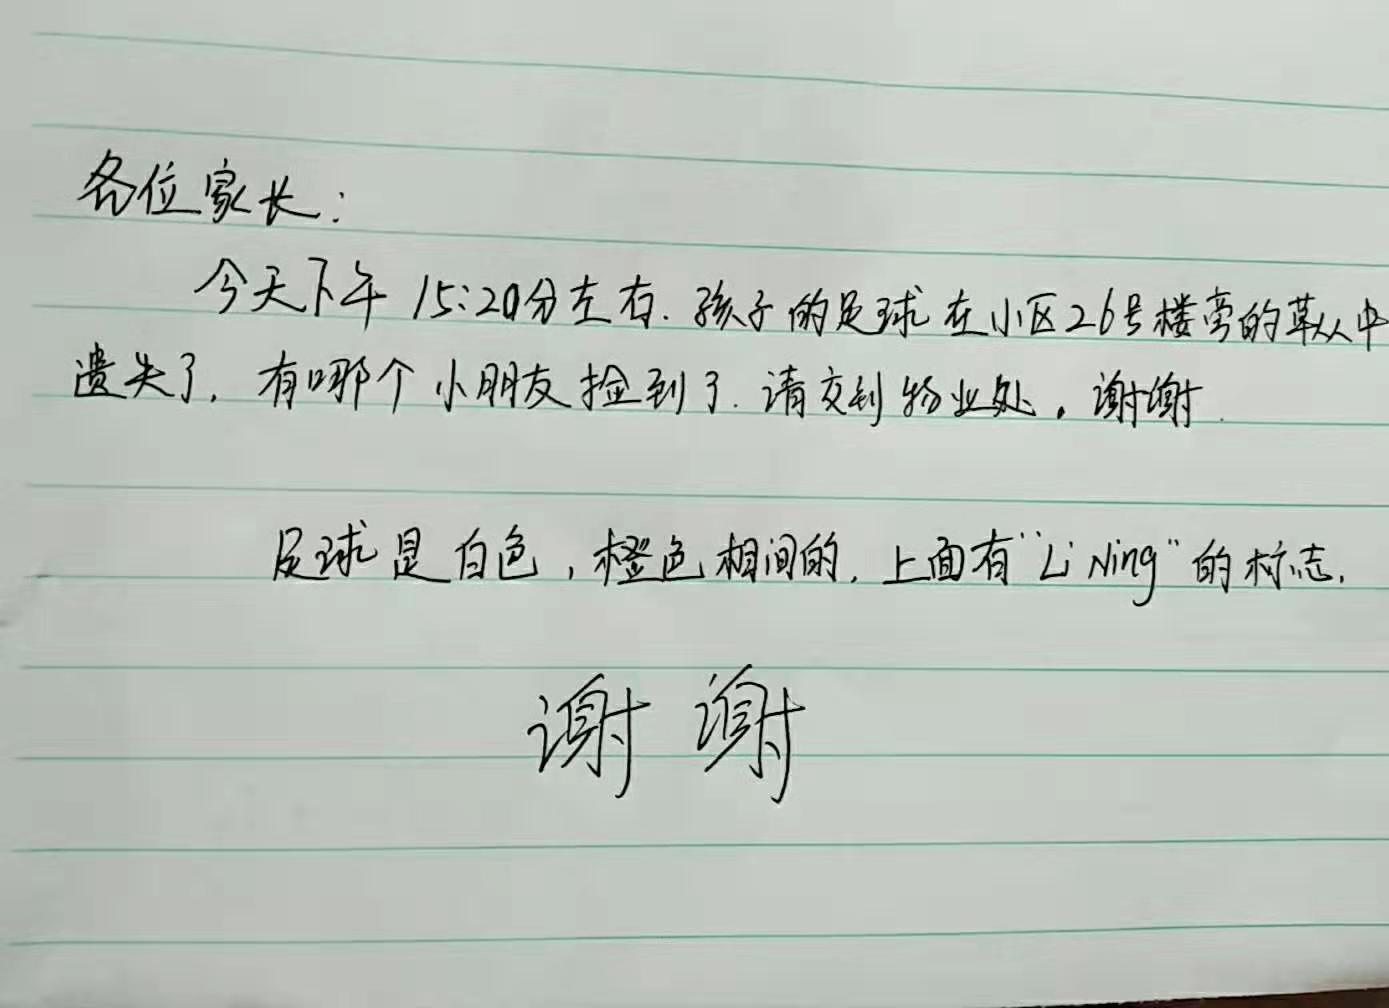 各位家长:
今天下午 15:20分左右. 孩子的足球在小区26号楼旁的草丛中
遗失了, 有哪个小朋友捡到了. 请交到物业处。谢谢.
足球是白色,橙色相间的, 上面有"Li Ning"的标志.
谢谢